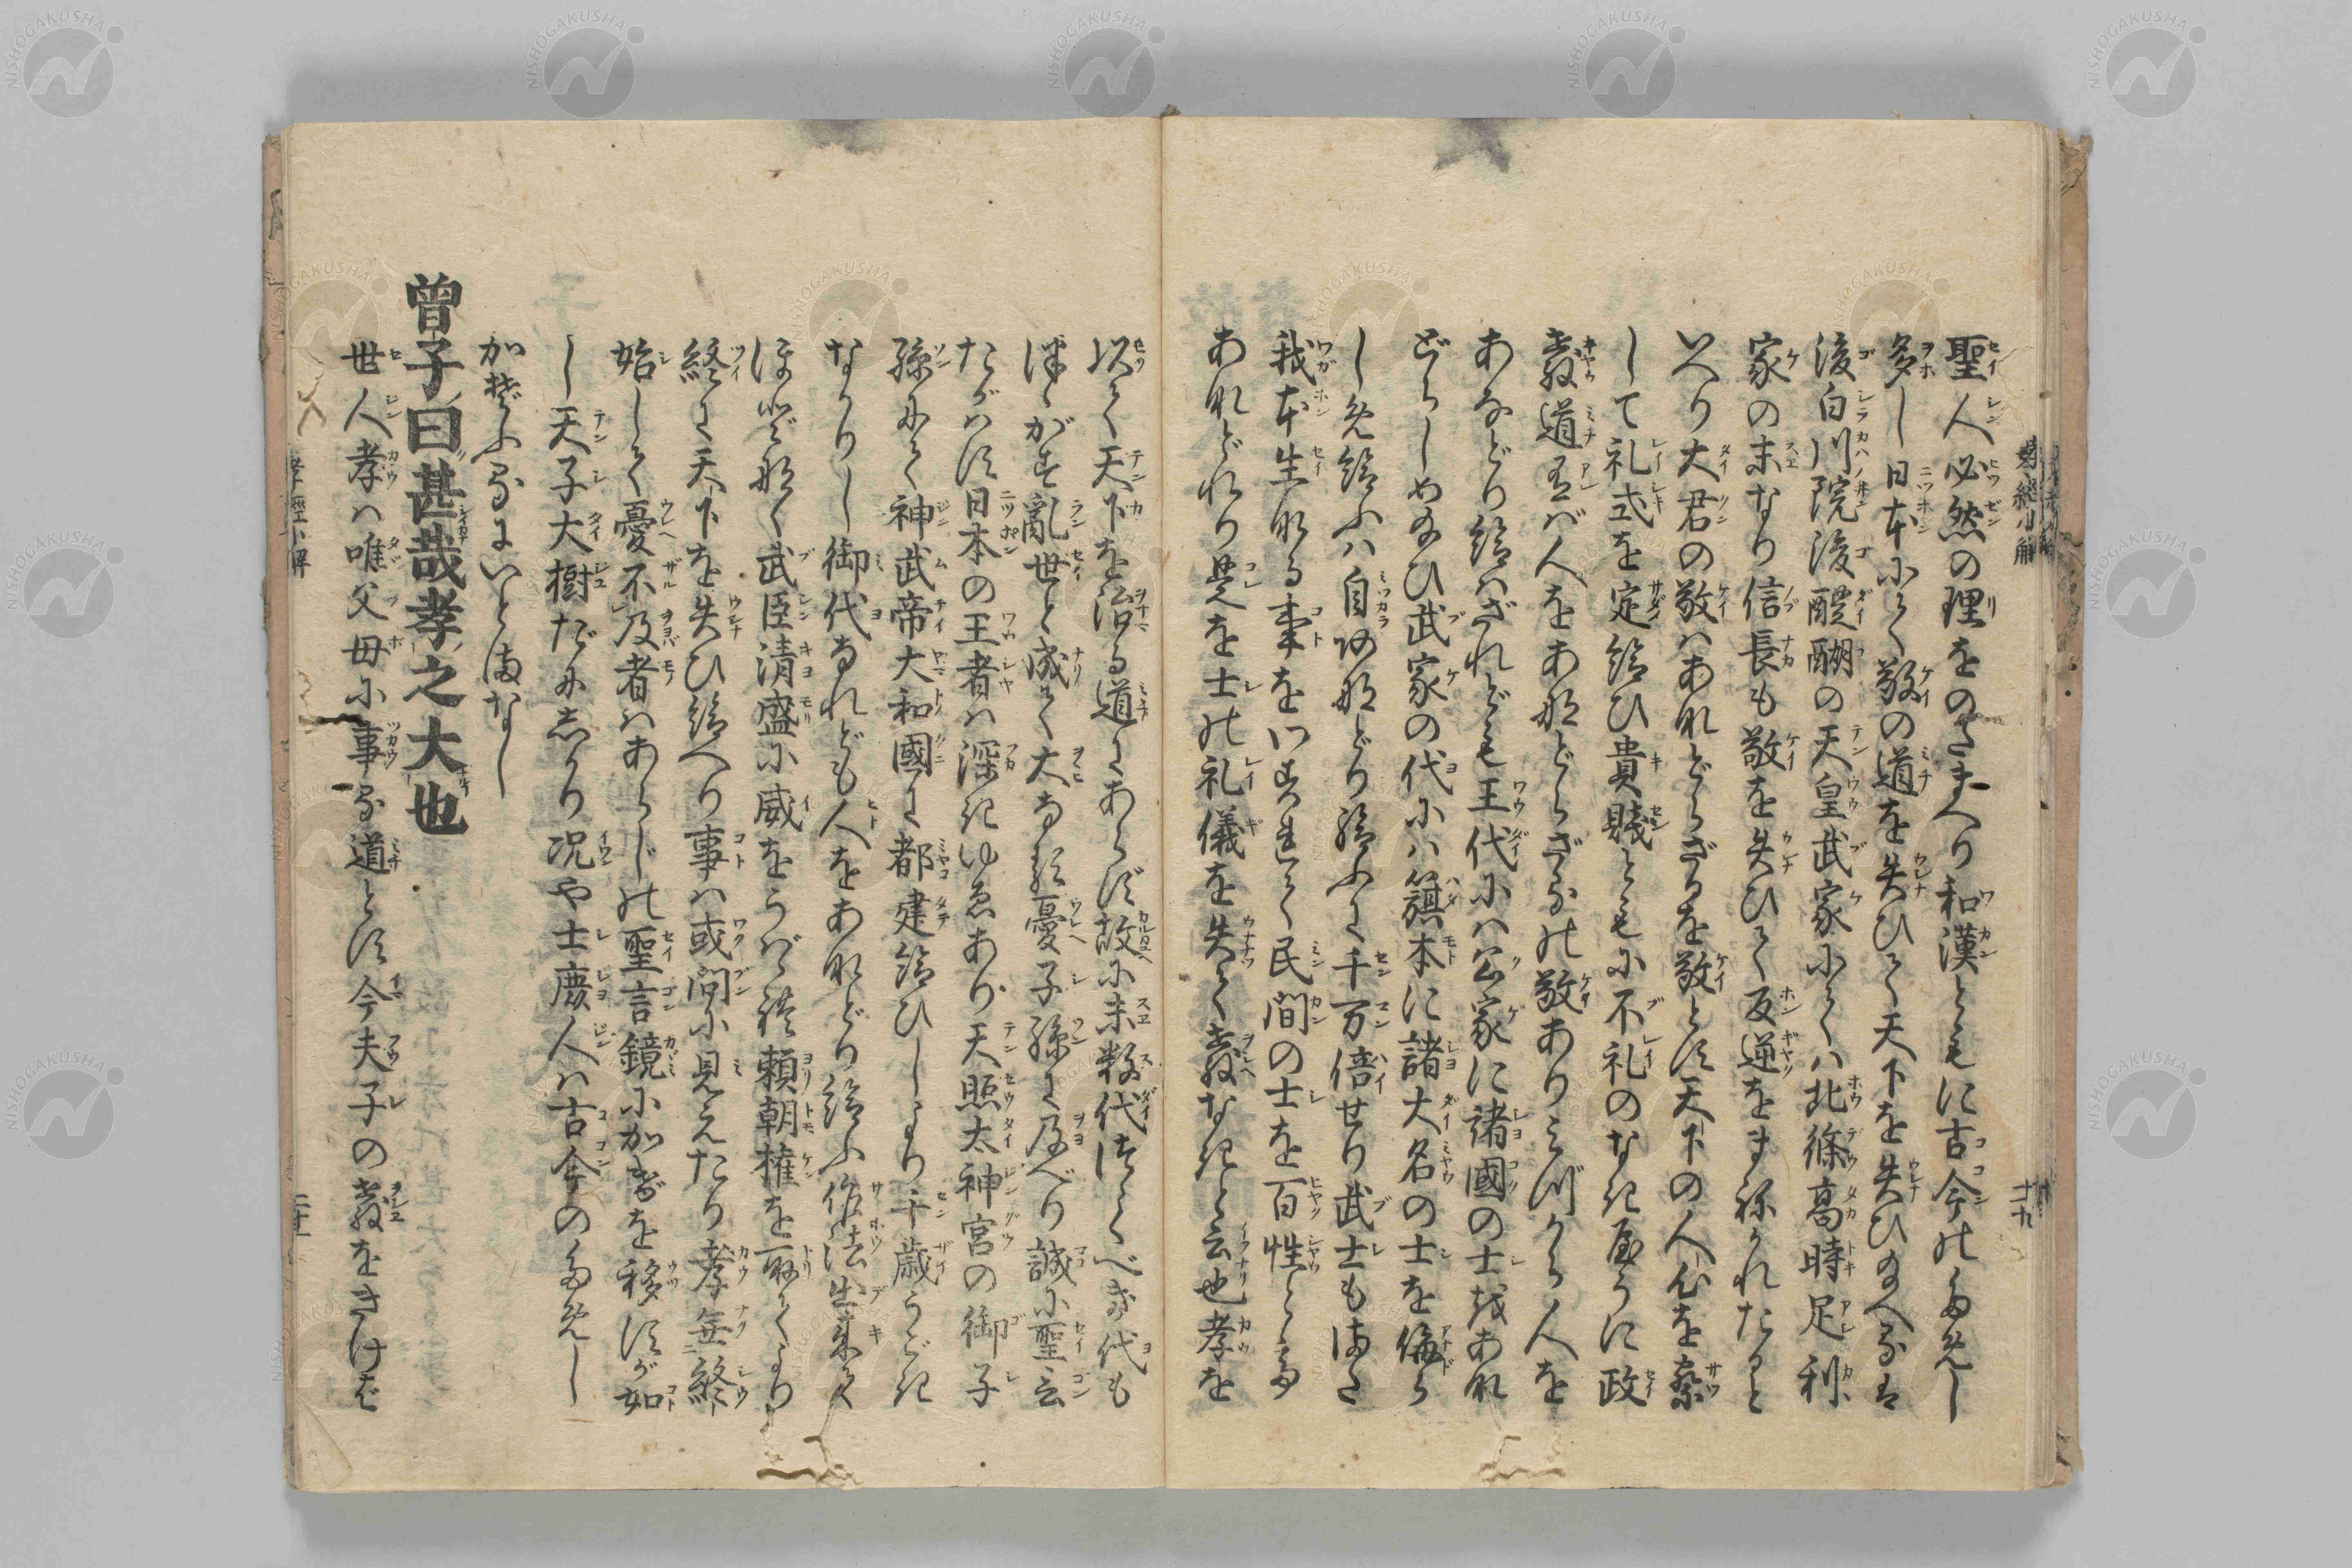 聖人必然の理をのたまへり和漢ともに古今のためし
多し日本にて敬の道を失ひて天下を失ひ給へるは
後白川院後醍醐の天皇武家にては北條高時足利
家の末なり信長も敬を失ひて反逆をまねかれたると
いへり大君の敬はあなどらざるを敬とす天下の人心を察
して礼式を定給ひ貴賤ともに不礼のなきやうに政
教道あれば人をあなどらざるの敬ありみづから人を
あなどり給はざれども王代には公家に諸國の士をあな
どらしめ給ひ武家の代には籏本に諸大名の士を侮ら
しめ給ふは自あなどり給ふに千万倍せり武士もまた
我本生なる事をいはれて民間の士を百性とて
あなどれり是を士の礼儀を失て教なきと云也孝を
以て天下を治る道にあらず故に末数代つゞくべき代も
はやがて亂世と成て大なる憂子孫に及べり誠に聖言
たがはず日本の王者は深きゆゑあり天照太神宮の御子
孫にて神武帝大和國に都建給ひしより千歳うごき
なかりし御代なれども人をあなどり給ふ作法出來て
ほどなく武臣清盛に威をうばゝれ頼朝權を取てより
終に天下を失ひ給へり事は或問に見えたり孝無終
始して憂不及者はあらじの聖言鏡にかげを移すが如
し天子大樹だにしかり况や士庶人は古今のためし
かぞふるにいとまなし
曾子曰甚哉孝之大也
世人孝は唯父母に事る道とす今夫子の教をきけば
孝經小解
十九